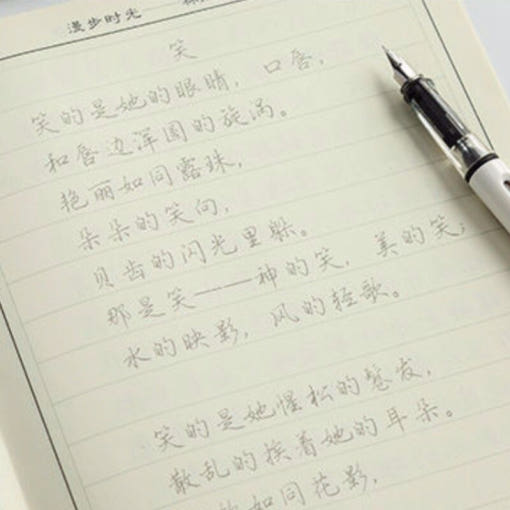 漫步时光
笑
笑的是她的眼睛，口唇，
和唇边浑圆的旋涡。
艳丽如同露珠，
朵朵的笑向，
贝齿的闪光里躲。
那是笑——神的笑，美的笑；
水的映影，风的轻歌。
笑的是她惺松的鬈发，
散乱的挨着她的耳朵。
如同花影，